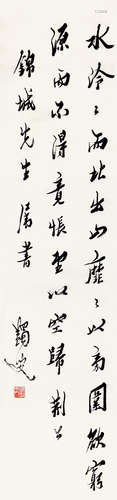 水泠泠而北出山靡靡以旁圍欲窮
源而不得竟悵望以空歸荊公
錦城先生屬書
蠲叟